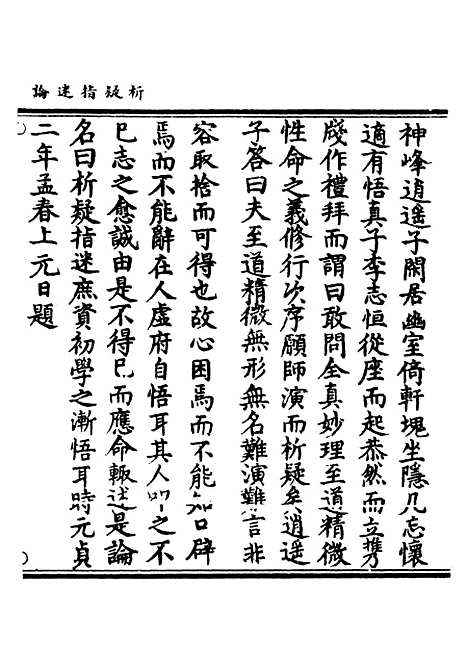 析疑指迷論
神峰逍遙子閑居幽室倚軒塊坐隱几忘懷
適有悟真子李志恒從座而起恭然而立攜
牋作禮拜而謂曰敢問全真妙理至道精微
性命之義修行次序願師演而析疑矣逍遥
子答曰夫至道精微無形無名難演難言非
容取捨而可得也故心困焉而不能知口辟
焉而不能辭在人虛府自悟耳其人叩之不
已志之愈誠由是不得已而應命輙述是論
名曰析疑指迷庶資初學之漸悟耳時元貞
二年孟春上元日題